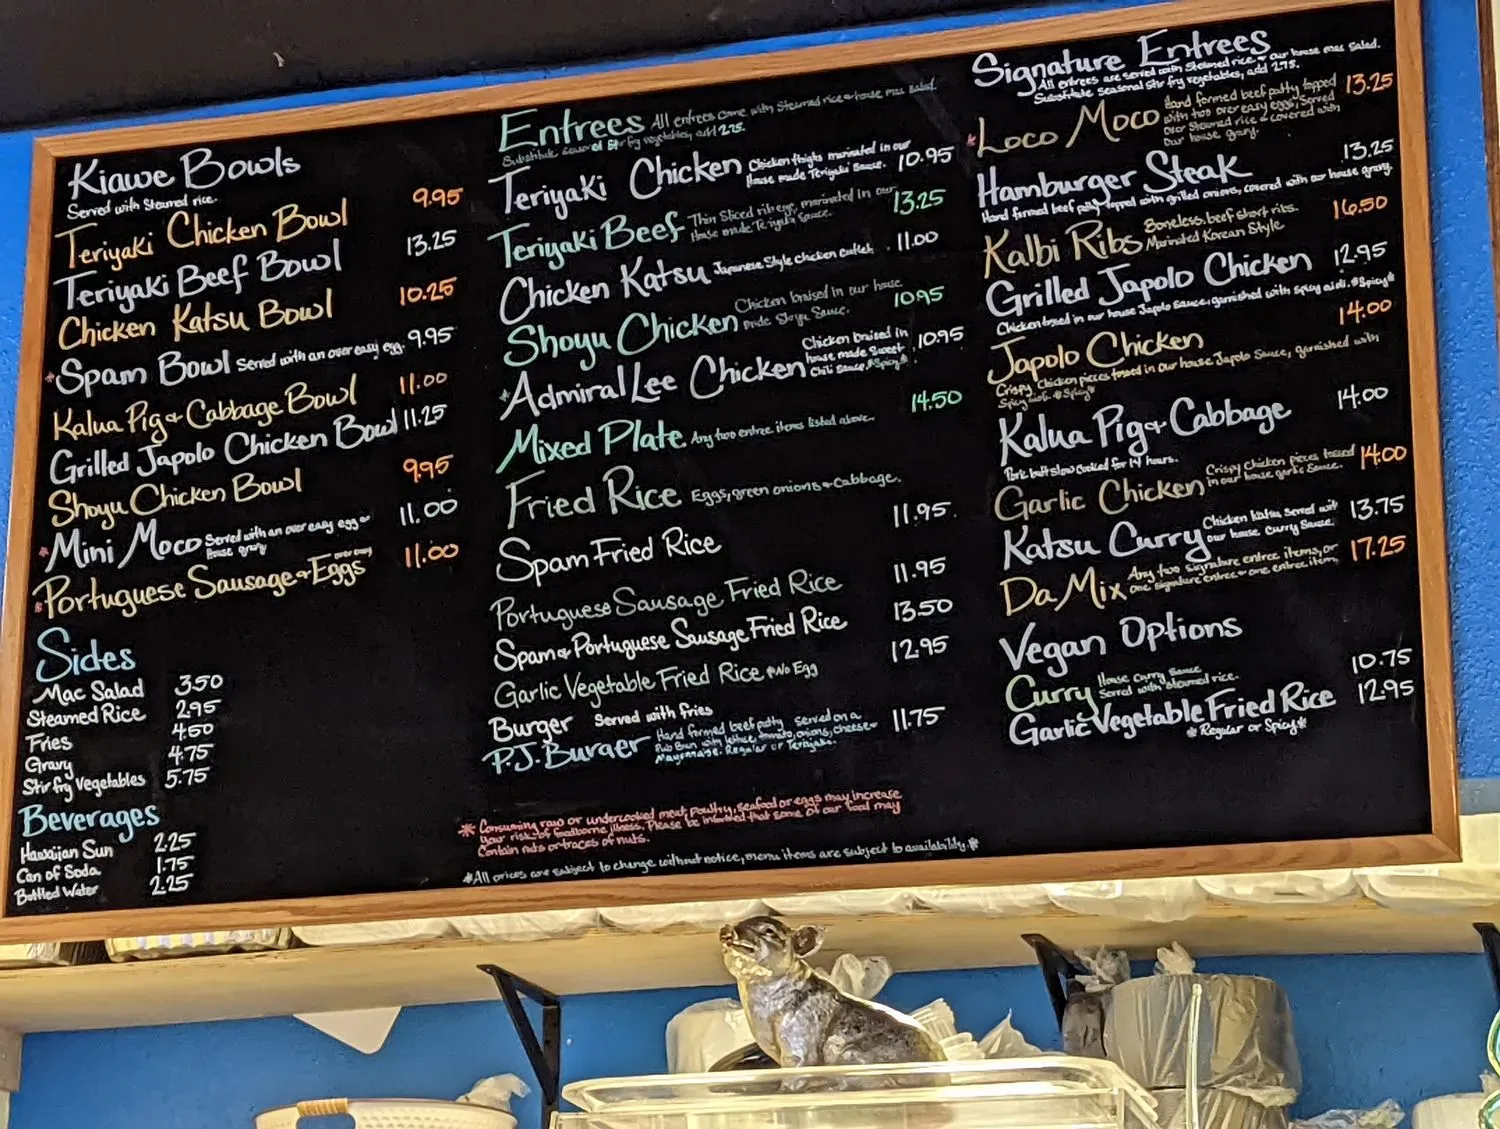 Kiawe Bowls
Served with Steamed rice.
Teriyaki Chicken Bowl 9.95
Teriyaki Beef Bowl 13.25
Chicken Katsu Bowl 10.25
*Spam Bowl Served with an over easy egg. 9.95
Kalua Pig & Cabbage Bowl 11.00
Grilled Japolo Chicken Bowl 11.25
Shoyu Chicken Bowl 9.95
*Mini Moco Served with an over easy egg or 11.00
House gravy
*Portuguese Sausage & Eggs over easy 11.00
Sides
Mac Salad 3.50
Steamed Rice 2.95
Fries 4.50
Gravy 4.75
Stir fry Vegetables 5.75
Beverages
Hawaiian Sun 2.25
Can of Soda 1.75
Bottled Water 2.25
Entrees All entrees come with Steamed rice & house mac salad.
Substitute seasonal Stir fry vegetables, add 2.75.
Teriyaki Chicken Chicken thighs marinated in our 10.95
House made Teriyaki Sauce.
Teriyaki Beef Thin Sliced rib eye, marinated in our 13.25
House made Teriyaki Sauce.
Chicken Katsu Japanese Style chicken cutlet. 11.00
Shoyu Chicken Chicken braised in our house 10.95
made Shoyu Sauce.
*Admiral Lee Chicken Chicken braised in 10.95
house made Sweet
Chili Sauce. *Spicy*
Mixed Plate Any two entree items listed above. 14.50
Fried Rice Eggs, green onions & Cabbage.
Spam Fried Rice 11.95
Portuguese Sausage Fried Rice 11.95
Spam & Portuguese Sausage Fried Rice 13.50
Garlic Vegetable Fried Rice *No Egg 12.95
Burger Served with fries
P.J. Burger Hand formed beef patty served on a 11.75
Pub Bun with lettuce, tomato, onions, cheese &
Mayonnaise. Regular or Teriyaki.
* Consuming raw or undercooked meat, poultry, seafood or eggs may increase
your risk of foodborne illness. Please be informed that some of our food may
Contain nuts or traces of nuts.
*All prices are subject to change without notice, menu items are subject to availability.*
Signature Entrees
All entrees are served with Steamed rice & our house mac Salad.
Substitute seasonal stir fry vegetables, add 2.75.
*Loco Moco Hand formed beef patty topped 13.25
with two over easy eggs, Served
over Steamed rice & covered with
Our house gravy.
Hamburger Steak 13.25
Hand formed beef patty topped with grilled onions, covered with our house gravy.
Kalbi Ribs Boneless, beef short ribs. 16.50
Marinated Korean Style.
Grilled Japolo Chicken 12.95
Chicken tossed in our house Japolo Sauce, garnished with spicy aioli. *Spicy*
Japolo Chicken 14.00
Crispy Chicken pieces tossed in our house Japolo Sauce, garnished with
Spicy aioli. *Spicy*
Kalua Pig & Cabbage 14.00
Pork butt slow cooked for 14 hours.
Garlic Chicken Crispy Chicken pieces tossed 14.00
in our house garlic Sauce.
Katsu Curry Chicken katsu served with 13.75
our house curry Sauce.
Da Mix Any two signature entree items, or 17.25
one signature entree & one entree item.
Vegan Options
Curry House Curry Sauce 10.75
Served with Steamed rice.
Garlic Vegetable Fried Rice 12.95
*Regular or Spicy*